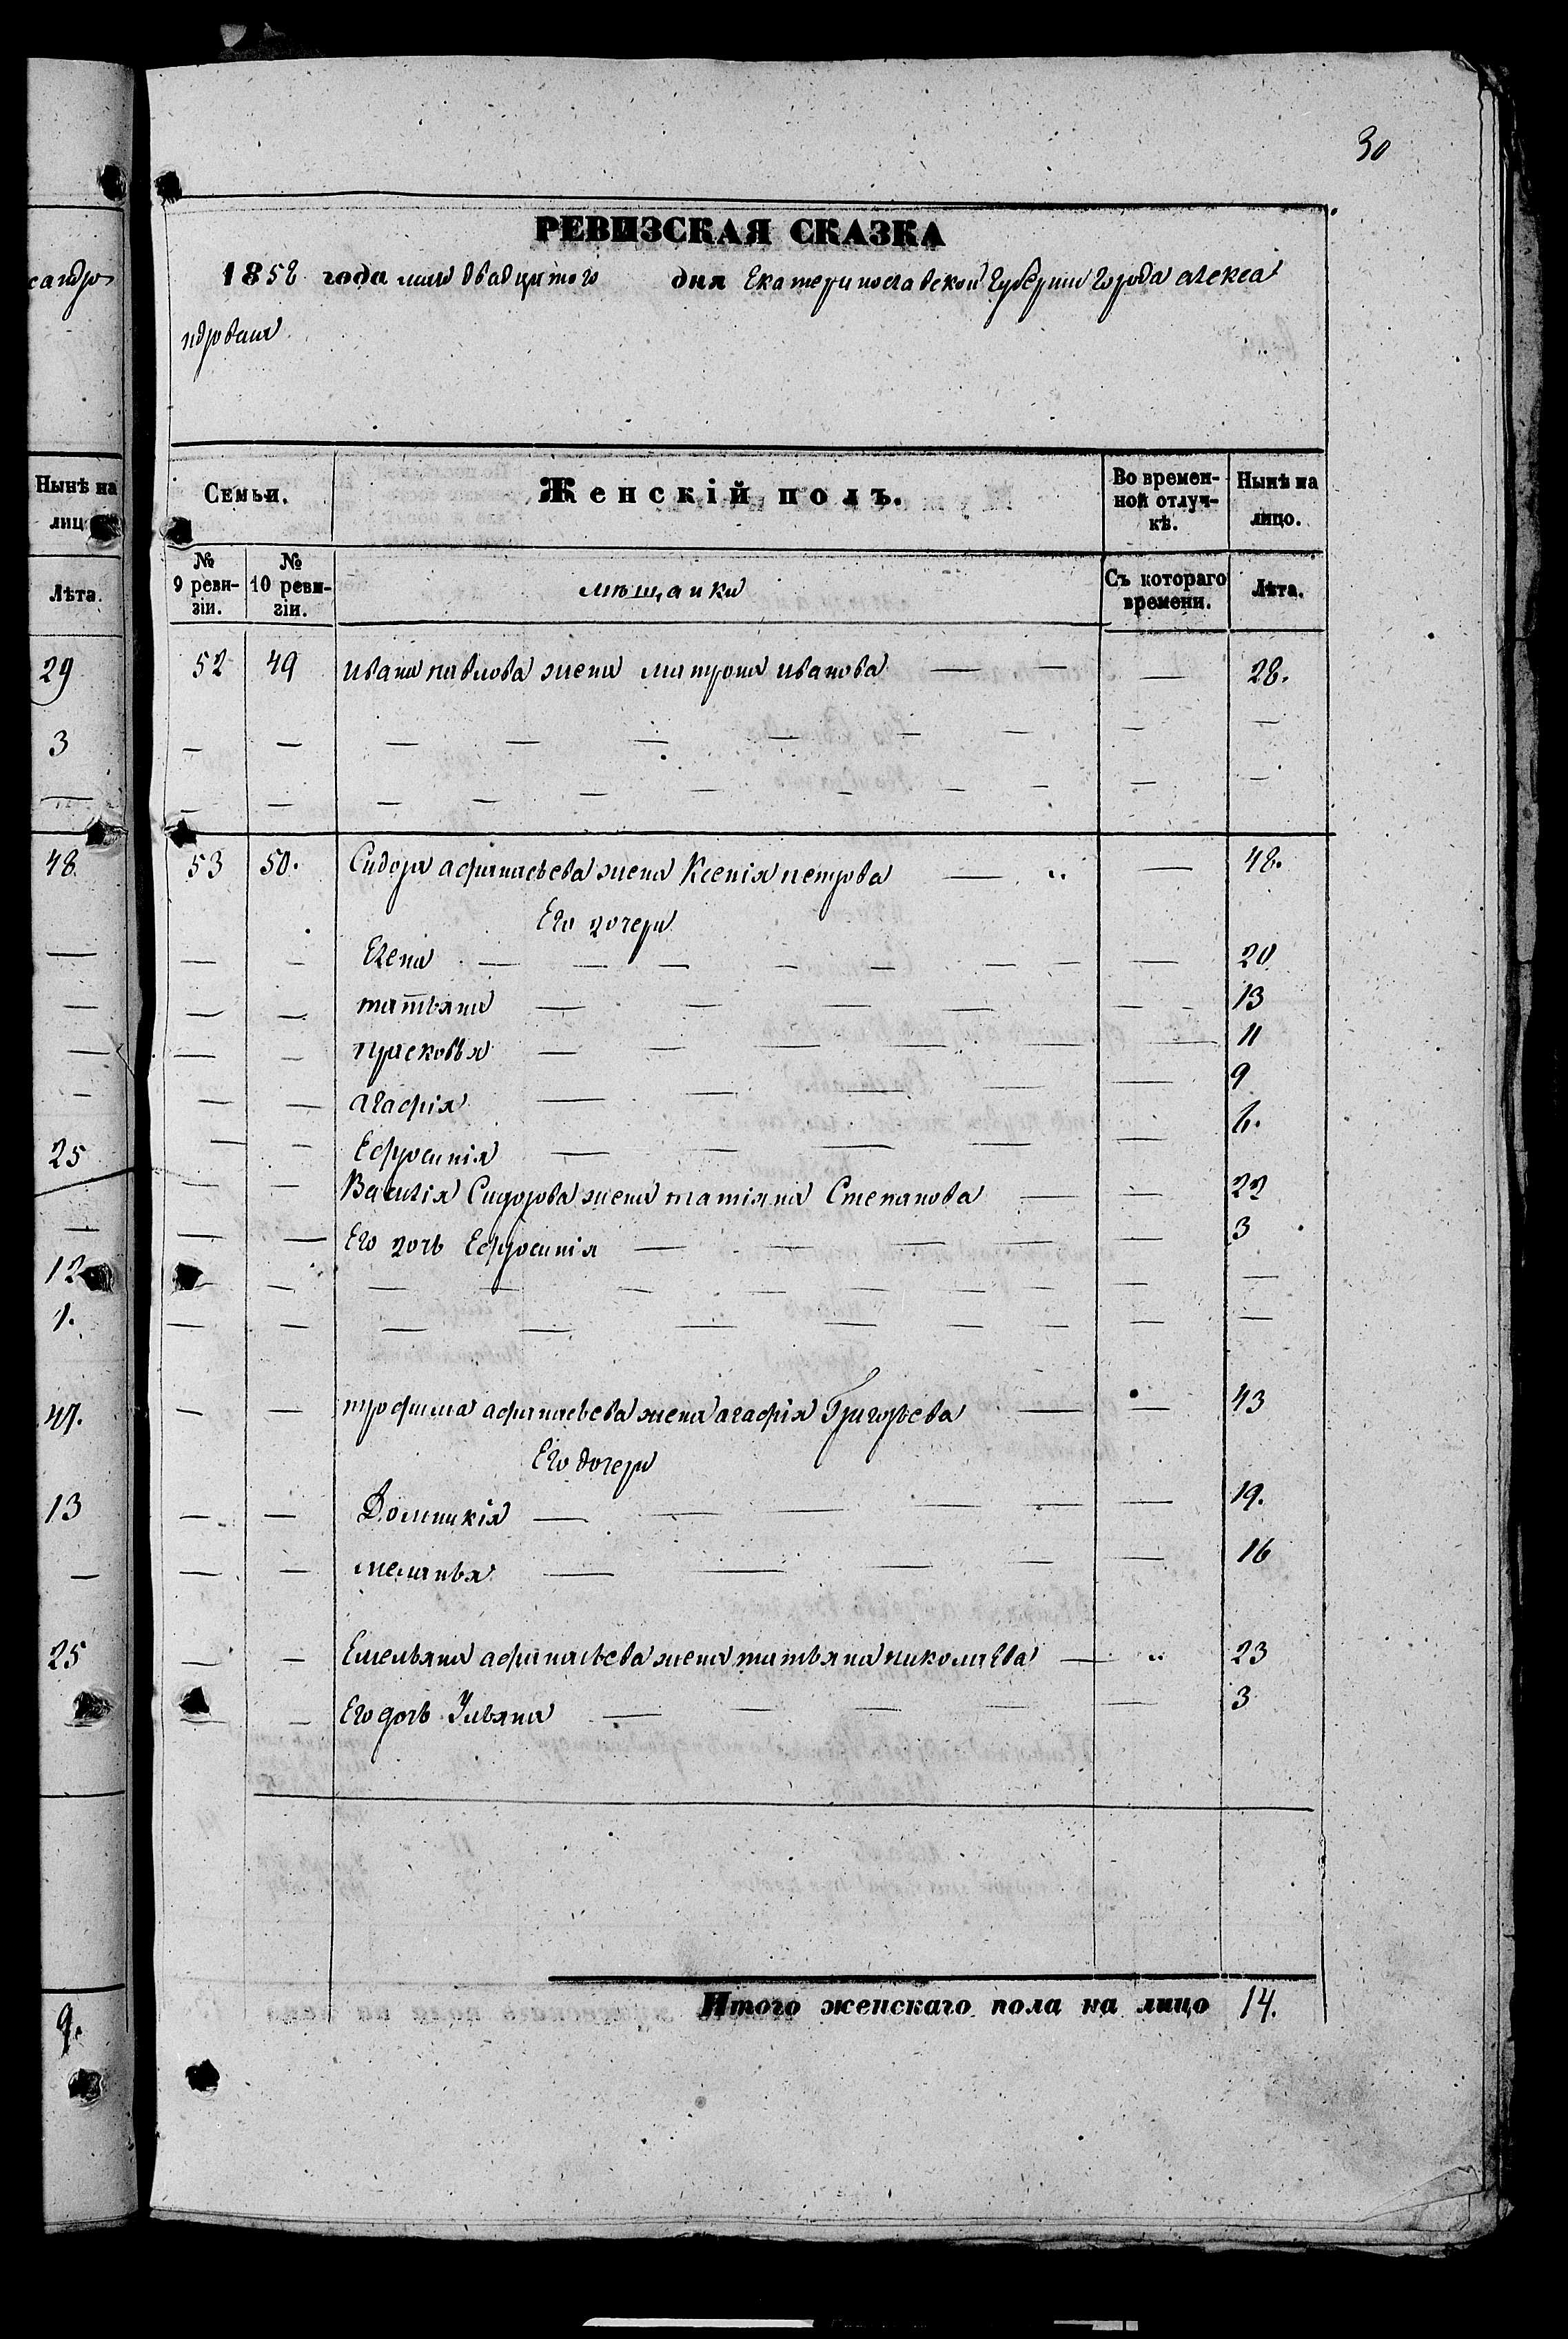 30
сандро
Нынѣ на
лиц
Лѣта.
29
3
48.
25
12
1.
47.
13
25
9.
РЕВИЗСКАЯ СКАЗКА
1858 года мая двадцятого дня Екатеринославской Губернии города алекса
ндровии
Семьи. Женскій полъ. Во времен-ной отлуч-кѣ. Нынѣ на лицо.
№ 9 реви-зіи. № 10 реви-зіи. мѣщанки Съ котораго времени. Лѣта.
52 49 ивана павлова жена матрона иванова — — — 28.
53 50. Сидора афанасьева жена Ксенія петрова — — 48.
Его дочери
Елена 20
татьяна 13
прасковья 11
агафія 9
Ефросинія 6.
Василія Сидорова жена татіяна Степанова — — 22
Его дочь Ефросинія 3
трофима афанасьева жена агафія Григорьева — — 43
Его дочери
Домникія 19.
меланья 16
Емельяна афанасьева жена татьяна николаева — 23
Его дочь Ульяна 3
Итого женскаго пола на лицо 14.